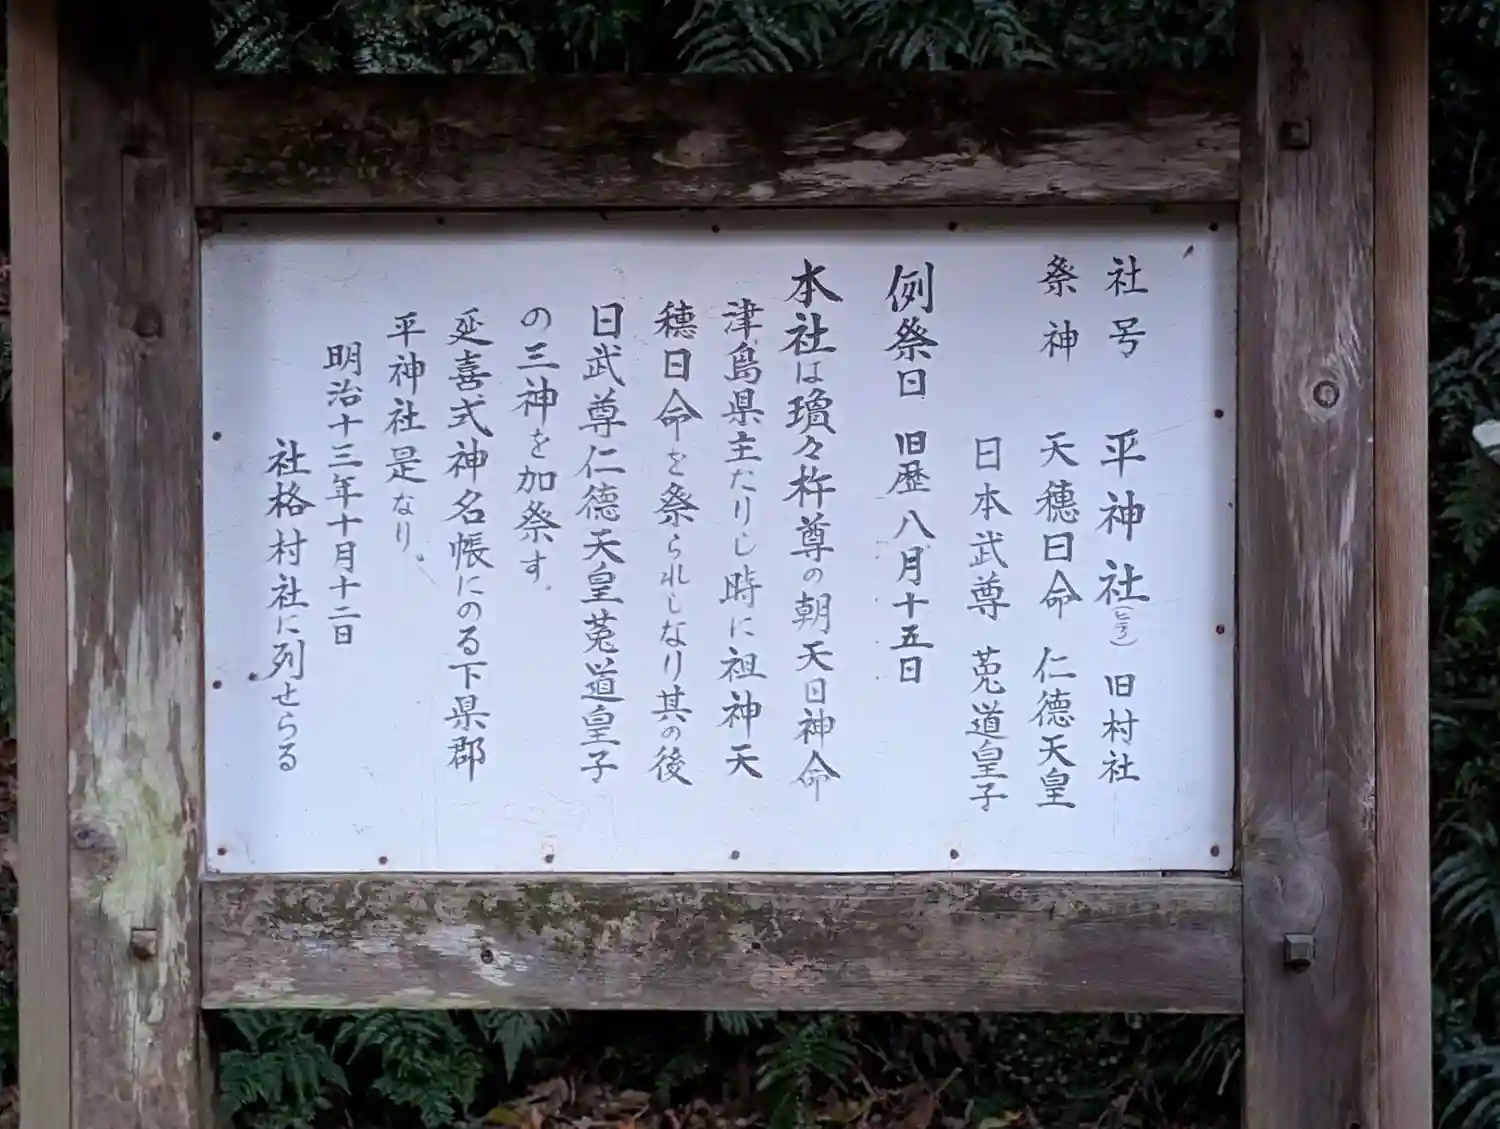 社号 平神社(ヒラ) 旧村社
祭神 天穗日命 仁德天皇
日本武尊 菟道皇子
例祭日 旧歴八月十五日
本社は瓊々杵尊の朝天日神命
津島県主たりし時に祖神天
穗日命を祭られしなり其の後
日武尊仁德天皇菟道皇子
の三神を加祭す。
延喜式神名帳にのる下県郡
平神社是なり。
明治十三年十月十二日
社格村社に列せらる